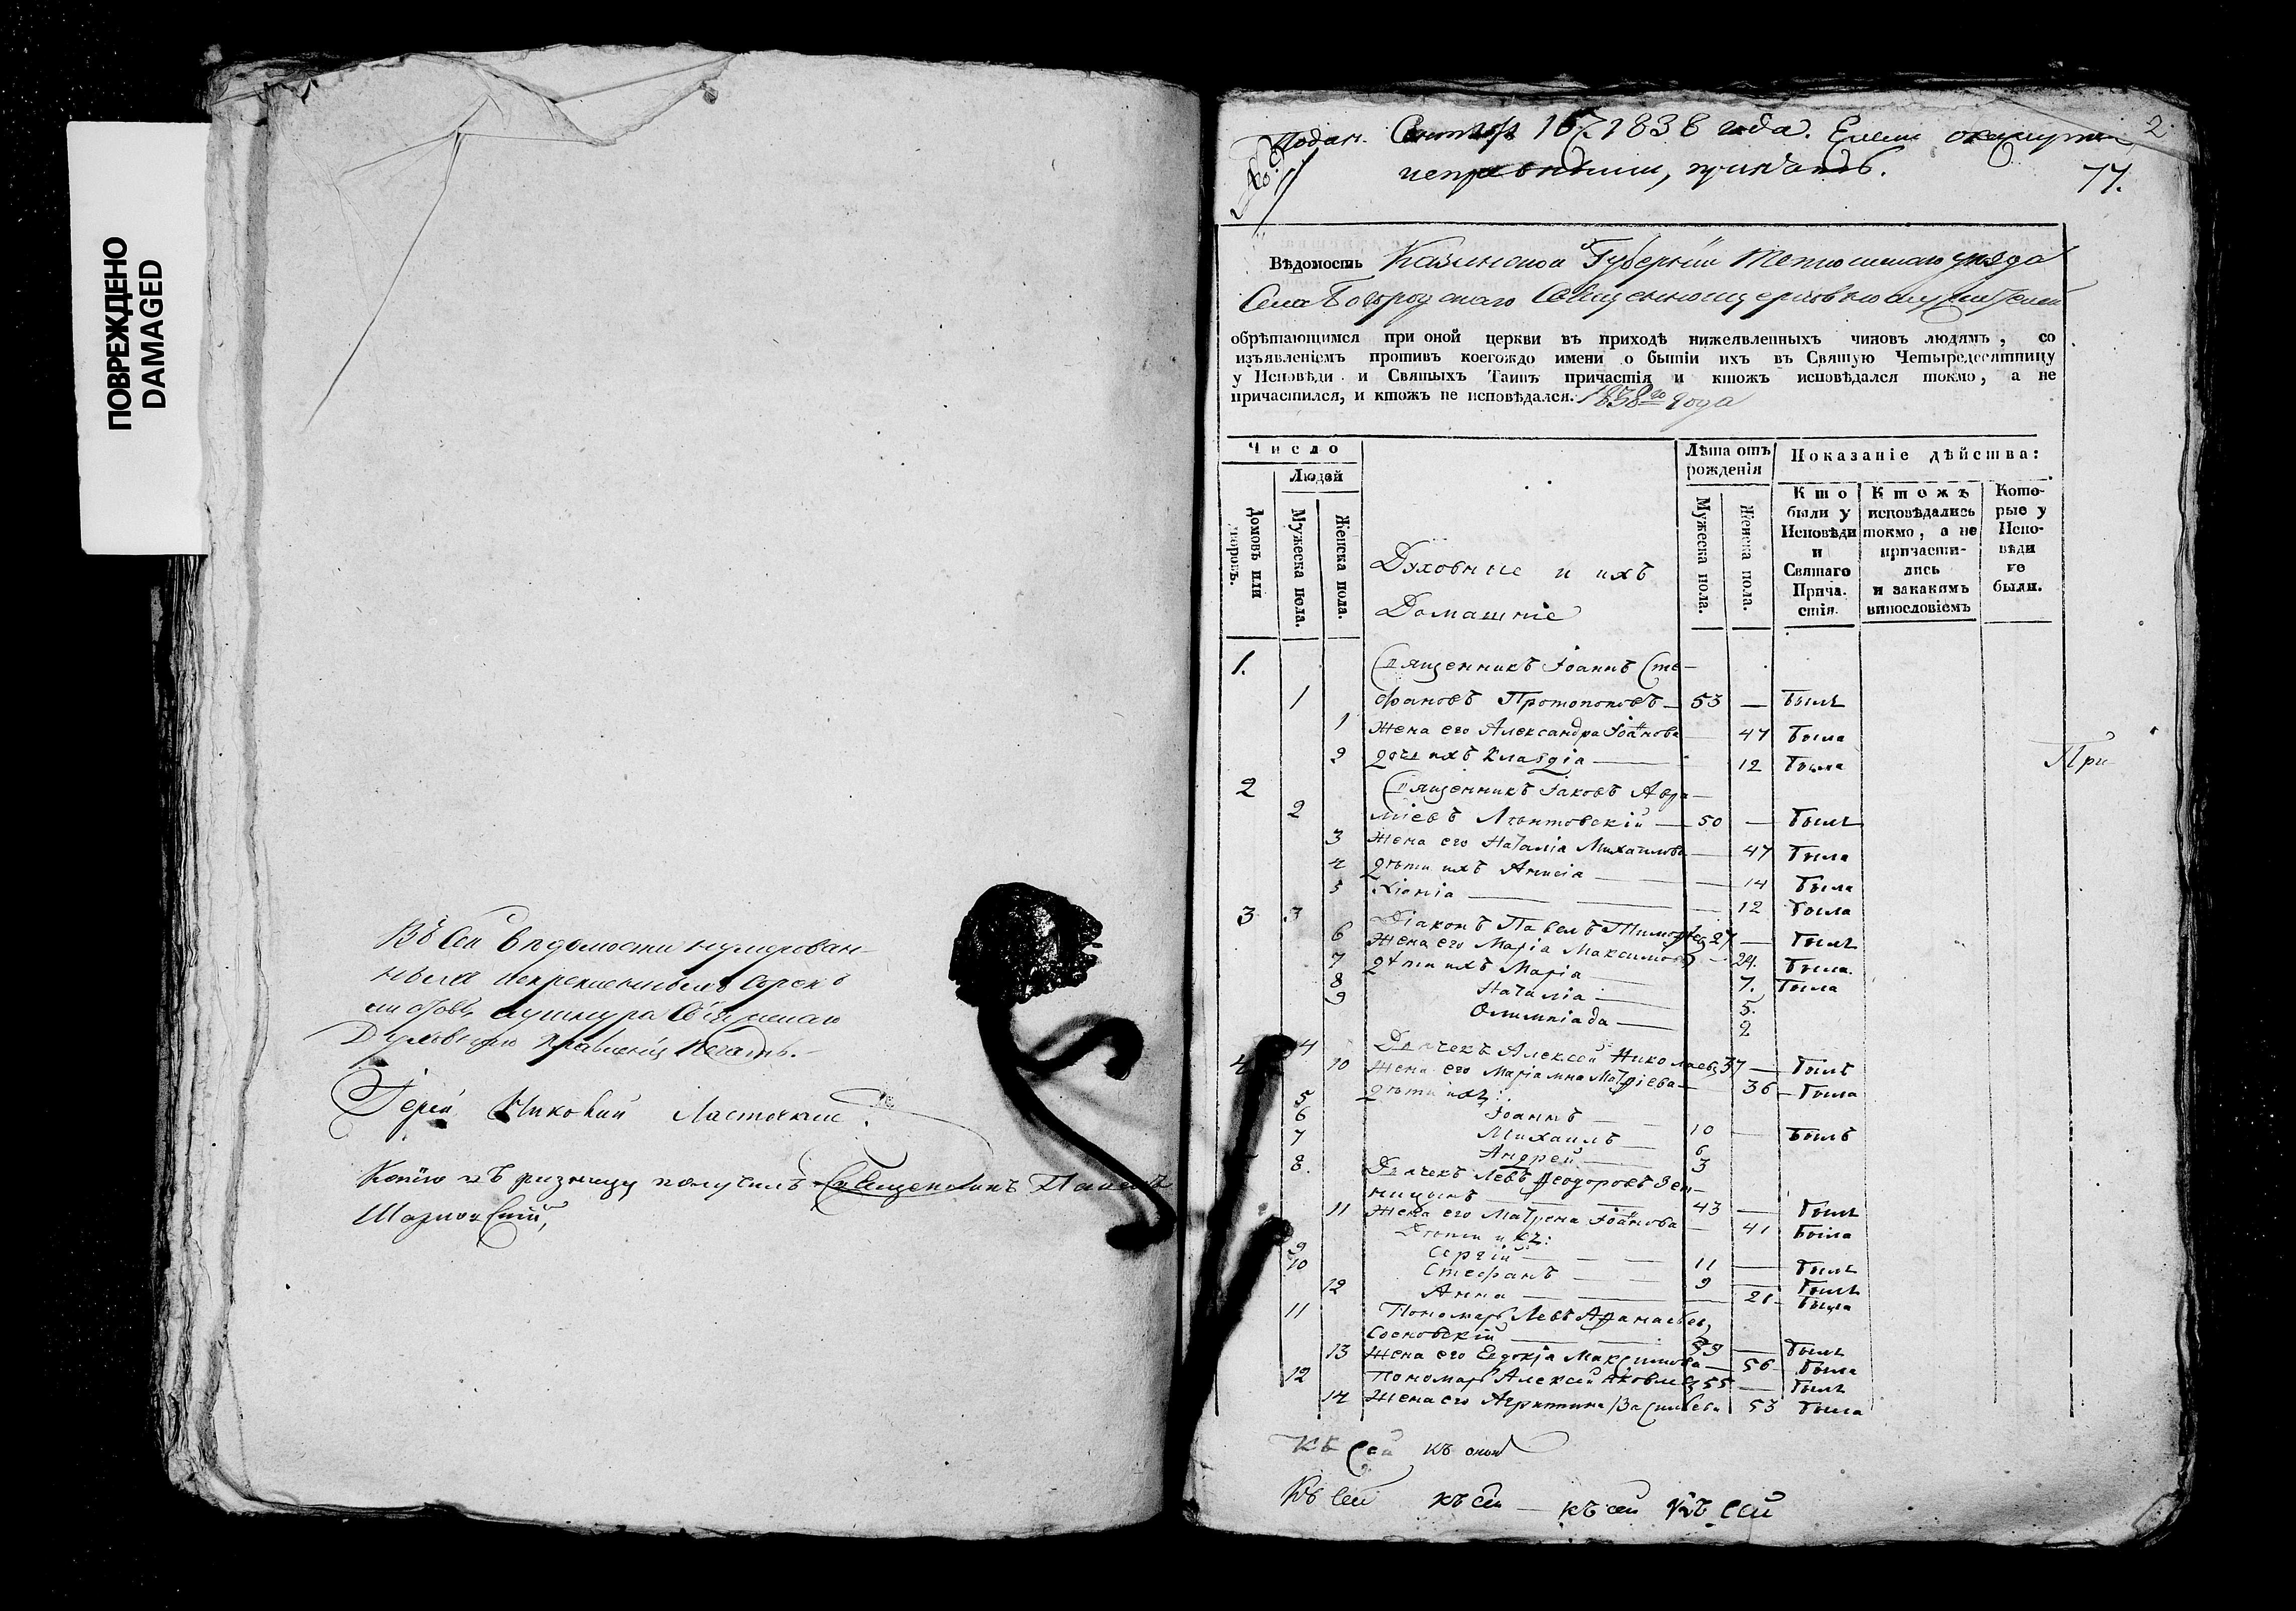 ПОВРЕЖДЕНО
DAMAGED
Въ сей ведомости нумерован-
ныхъ
листовъ
Духовнаго Правленія печать.
Іерей Николай Ласточкин
Копію въ ризницу получилъ Священникъ
Подан. 1838 года. Если окажутся
неправильн, 
2
77.
Вѣдомость Казанской Губерніи Тетюшскаго уѣзда
Села Богородскаго Священноцерковнослужителей
обрѣтающимся при оной церкви въ приходѣ нижеявленныхъ чиновъ людямъ, со
изъявленіемъ противъ коегождо имени о бытіи ихъ въ Святую Четыредесятницу
у Исповѣди и Святыхъ Таинъ причастія и ктожъ исповѣдался токмо, а не
причастился, и ктожъ не исповѣдался. 1838го года
Число
Людей
Домовъ или дворовъ.
Мужеска пола.
Женска пола.
Духовные и ихъ
Домашніе
Лѣта отъ рожденія
Мужеска пола.
Женска пола.
Показаніе дѣйства:
Кто были у Исповѣди и Святаго Причастія.
Ктожъ исповѣдались токмо, а не причастились и закакимъ винословіемъ
Которые у Исповѣди не были.
1. Священникъ Іоаннъ Сте-
1 фановъ Протопоповъ — 53 — былъ
1 Жена его Александра Іоаннова 47 была
2 дочь ихъ Клавдія — 12 была
При
2 Священникъ Іаковъ Авра-
2 міевъ 50 — былъ
3 Жена его Наталія Михаилова — 47 была
4 дѣти ихъ Анисія — 14 была
5 Хіонія — 12 была
3 3 Діаконъ Павелъ Тимофеевъ 27 — былъ
6 Жена его Марія Максимова — 24. была.
7 дѣти ихъ Марія 7. была
8 Наталія — 5.
9 Олимпіада — 2
4 4 Дьячекъ Алексей Николаевъ 37 — былъ
10 Жена его Маріамна — 36 — была
дѣти ихъ:
5 Іоаннъ — 10 — былъ
6 Михаилъ — 6
7 Андрей — 3
8. Дьячекъ Левъ Феодоровъ Зен-
ницынъ 43 — былъ
11 Жена его Матрена Іоаннова — 41 была
Дѣти ихъ:
9 Сергій — 11 — былъ
10 Стефанъ — 9 — былъ
12 Анна — 21 — была
11 Пономарь Левъ Афанасьевъ
Сосновскій — 59 — былъ
13 Жена его Евдокія Максимова — 56 была
12 Пономарь Алексей Яковлевъ 55 — былъ
14 Жена его Агрипина Васильева 53 была
Къ сей къ оной
Къ сей къ сей — къ сей къ сей